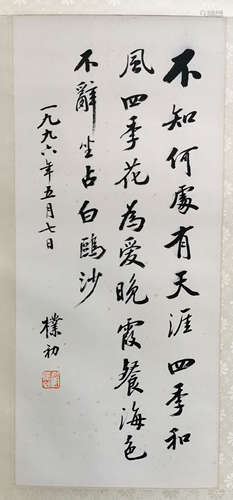 不知何處有天涯四季和
風四季花為愛晚霞餐海色
不辭坐占白鷗沙
一九九六年五月七日
樸初